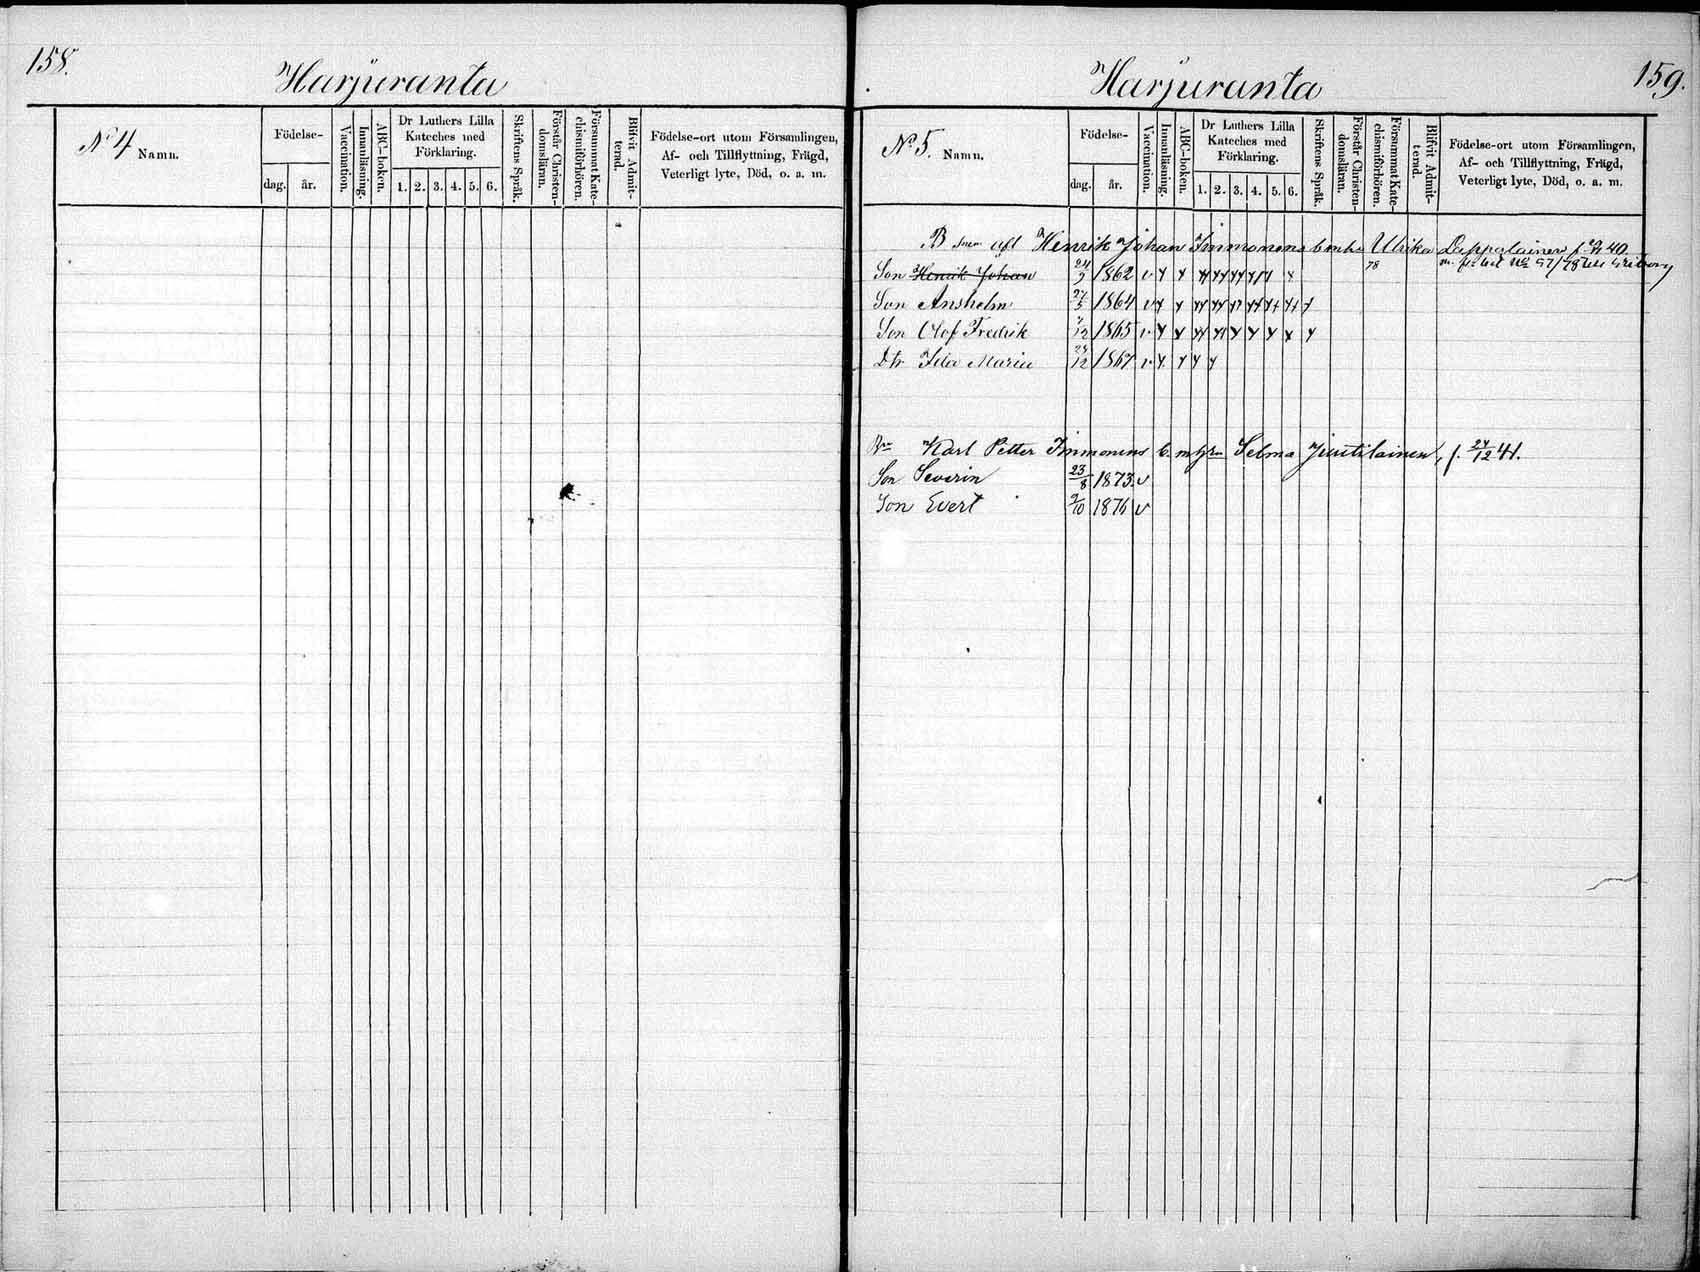 158.
Harjuranta
No 4 Namn.
Födelse-
dag.
år.
Vaccination.
Innanläsning.
ABC-boken.
Dr Luthers Lilla
Kateches med
Förklaring.
1. 2. 3. 4. 5. 6.
Skriftens Språk.
Förstår Christen-
domsläran.
Försummat Kate-
chismiförhören.
Blifvit Admit-
terad.
Födelse-ort utom Församlingen,
Af- och Tillflyttning, Frägd,
Veterligt lyte, Död, o. a. m.
159.
Harjuranta
No 5. Namn.
Födelse-
dag.
år.
Vaccination.
Innanläsning.
ABC-boken.
Dr Luthers Lilla
Kateches med
Förklaring.
1. 2. 3. 4. 5. 6.
Skriftens Språk.
Förstår Christen-
domsläran.
Försummat Kate-
chismiförhören.
Blifvit Admit-
terad.
Födelse-ort utom Församlingen,
Af- och Tillflyttning, Frägd,
Veterligt lyte, Död, o. a. m.
Henrik Johan Immonens Ulrika Lappalainen
Son Henrik Johan 1862 v 78
Son Ansholm 1864 v
Son Olof Fredrik 1865 v
Dtr Ida Maria 1867 v
Karl Petter Immonens Selma Juutilainen, f. 27/12 41.
Son Severin 23/8 1873 v
Son Evert 9/10 1876 v